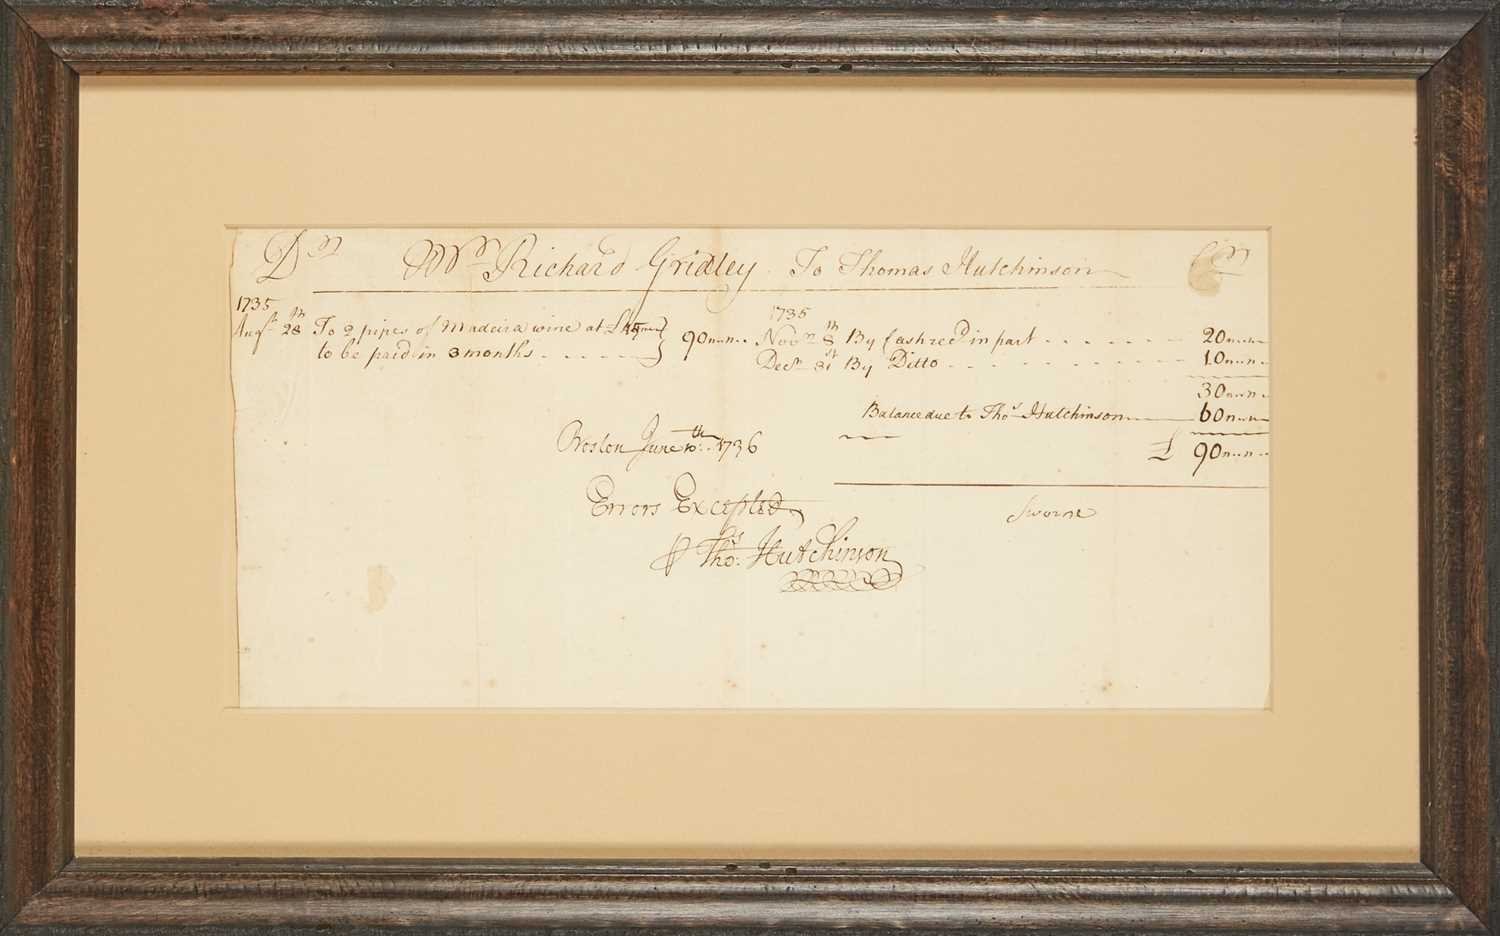 Dr Mr Richard Gridley To Thomas Hutchinson Cr
1735
Augst 28th To 2 pipes of Madeira wine at £45
to be paid in 3 months - - - - - 90 „ „
1735
Novr 8th By Cash recd in part - - - - - - 20 „ „
Decr 31st By Ditto - - - - - - - - 10 „ „
30 „ „
Balance due to Thos Hutchinson 60 „ „
£ 90 „ „
Boston June 10th 1736
Errors Excepted
Sworne
⅌ Thos Hutchinson